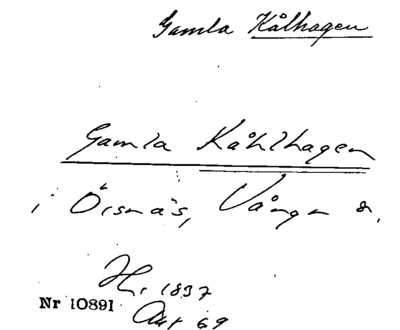 Gamla Kålhagen
Gamla Kåhlhagen
i Örsnäs, Vånga s.
Hr 1837
Nr 10891
Akt 69